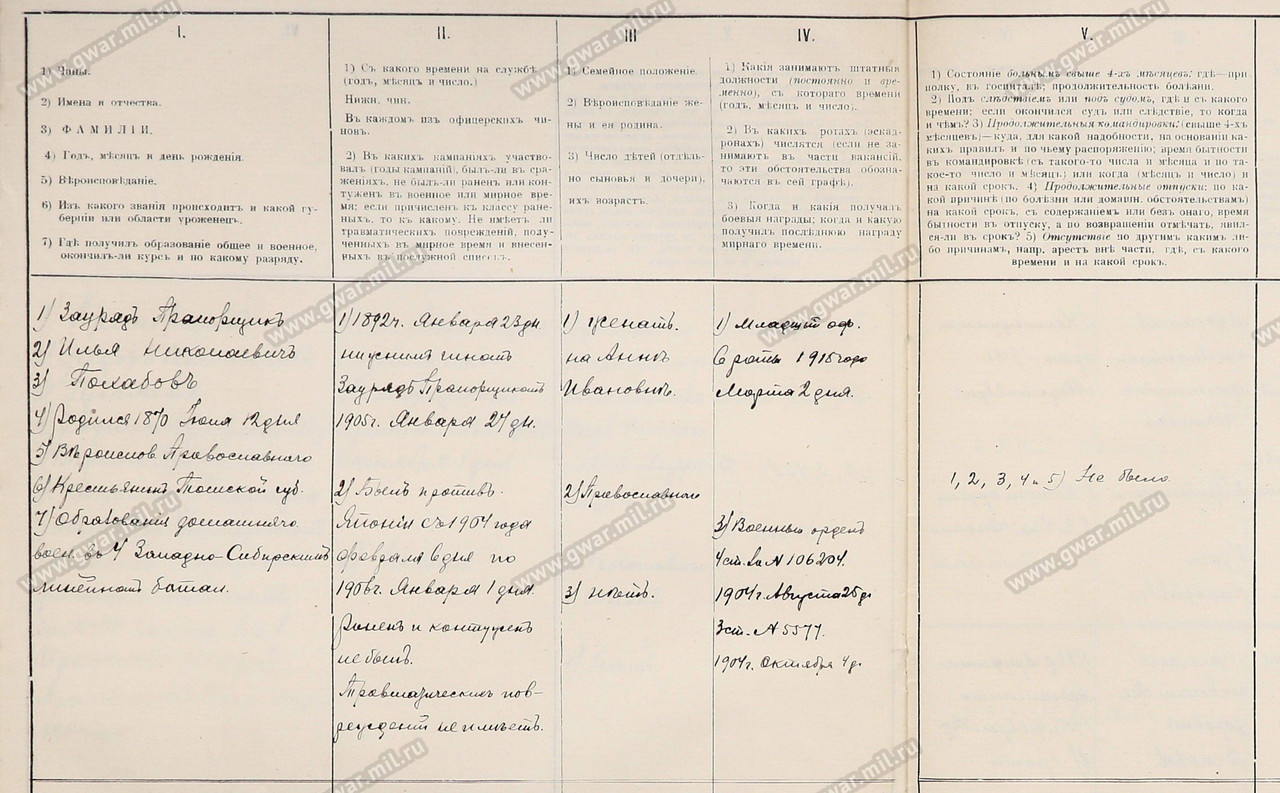 I.
1) Чины.
2) Имена и отчества.
3) ФАМИЛІИ.
4) Годъ, мѣсяцъ и день рожденія.
5) Вѣроисповѣданіе.
6) Изъ какого званія происходитъ и какой гу-
берніи или области уроженецъ.
7) Гдѣ получилъ образованіе общее и военное,
окончилъ-ли курсъ и по какому разряду.
II.
1) Съ какого времени на службѣ
(годъ, мѣсяцъ и число.)
Нижн. чин.
Въ каждомъ изъ офицерскихъ чи-
новъ.
2) Въ какихъ кампаніяхъ участво-
валъ (годы кампаній), былъ-ли въ сра-
женіяхъ, не былъ-ли раненъ или кон-
туженъ въ военное или мирное вре-
мя; если причисленъ къ классу ране-
ныхъ, то къ какому. Не имѣетъ ли
травматическихъ поврежденій, полу-
ченныхъ въ мирное время и внесен-
ныхъ въ послужной списокъ.
III
1) Семейное положеніе.
2) Вѣроисповѣданіе же-
ны и ея родина.
3) Число дѣтей (отдѣль-
но сыновья и дочери),
ихъ возрастъ.
IV.
1) Какія занимаютъ штатныя
должности (постоянно и вре-
менно), съ котораго времени
(годъ, мѣсяцъ и число).
2) Въ какихъ ротахъ (эскад-
ронахъ) числятся (если не за-
нимаютъ въ части вакансій,
то эти обстоятельства обозна-
чаются въ сей графѣ).
3) Когда и какія получалъ
боевыя награды; когда и какую
получилъ послѣднюю награду
мирнаго времени.
V.
1) Состояніе больнымъ свыше 4-хъ мѣсяцевъ: гдѣ—при
полку, въ госпиталѣ; продолжительность болѣзни.
2) Подъ слѣдствіемъ или подъ судомъ, гдѣ и съ какого
времени; если окончился судъ или слѣдствіе, то когда
и чѣмъ? 3) Продолжительныя командировки: (свыше 4-хъ
мѣсяцевъ)—куда, для какой надобности, на основаніи ка-
кихъ правилъ и по чьему распоряженію; время бытности
въ командировкѣ (съ такого-то числа и мѣсяца и по та-
кое-то число и мѣсяцъ) или когда (мѣсяцъ и число) и
на какой срокъ. 4) Продолжительные отпуски: по ка-
кой причинѣ (по болѣзни или домашн. обстоятельствамъ)
на какой срокъ, съ содержаніемъ или безъ онаго, время
бытности въ отпуску, а по возвращеніи отмѣчать, явил-
ся-ли въ срокъ? 5) Отсутствіе по другимъ какимъ ли-
бо причинамъ, напр. арестъ внѣ части, гдѣ, съ какого
времени и на какой срокъ.
1) Заурядъ Прапорщикъ
2) Илья Николаевичъ
3) Похабовъ
4) Родился 1870 Іюля 12 дня
5) Вѣроиспов. Православнаго
6) Крестьянинъ Томской губ.
7) Образованія домашняго
воен. въ 4 Западно-Сибирскимъ
линейномъ батал.
1) 1892 г. Января 23 дн.
нижнимъ чиномъ
Заурядъ Прапорщикомъ
1905 г. Января 27 дн.
2) Былъ противъ
Японіи съ 1904 года
февраля 6 дня по
1906 г. Января 1 дня.
Раненъ и контуженъ
не былъ.
Травматическихъ пов-
режденій не имѣетъ.
1) Женатъ.
на Аннѣ
Ивановнѣ.
2) Православнаго
3) нѣтъ.
1) Младшій оф.
6 роты 1915 года
Марта 2 дня.
3) Военный орденъ
4 ст. за № 106204.
1904 г. Августа 25 дн
3 ст. № 5577.
1904 г. Октября 4 д.
1, 2, 3, 4 и 5) Не было
www.gwar.mil.ru